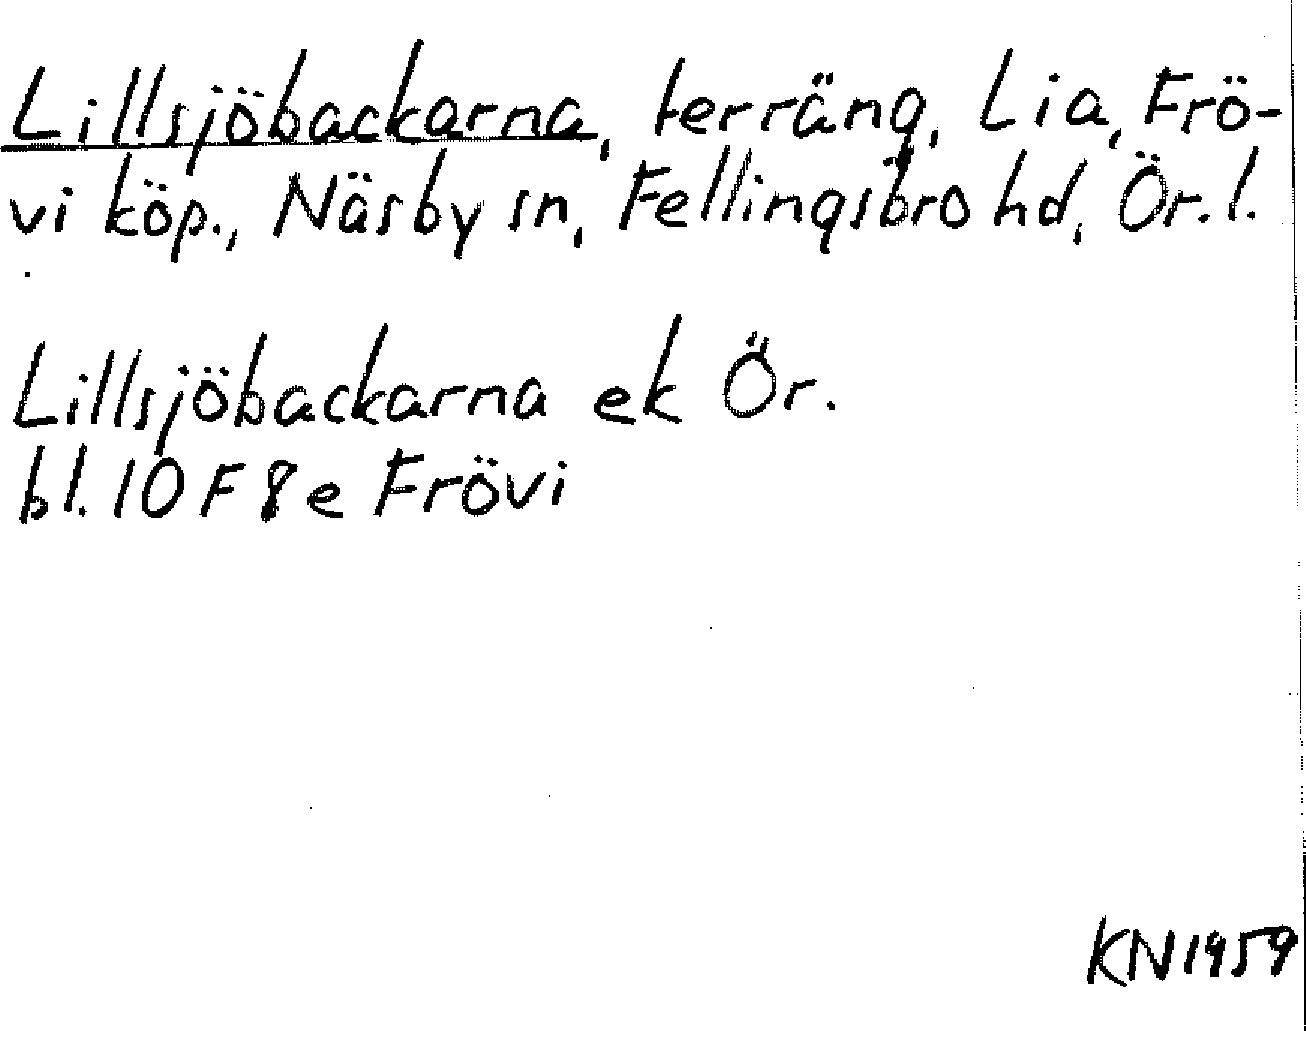 Lillsjöbackarna, terräng, Lia, Frö-
vi köp., Näsby sn, Fellingsbro hd, Ör. l.
Lillsjöbackarna ek Ör.
bl. 10 F 8 e Frövi
KN 1959